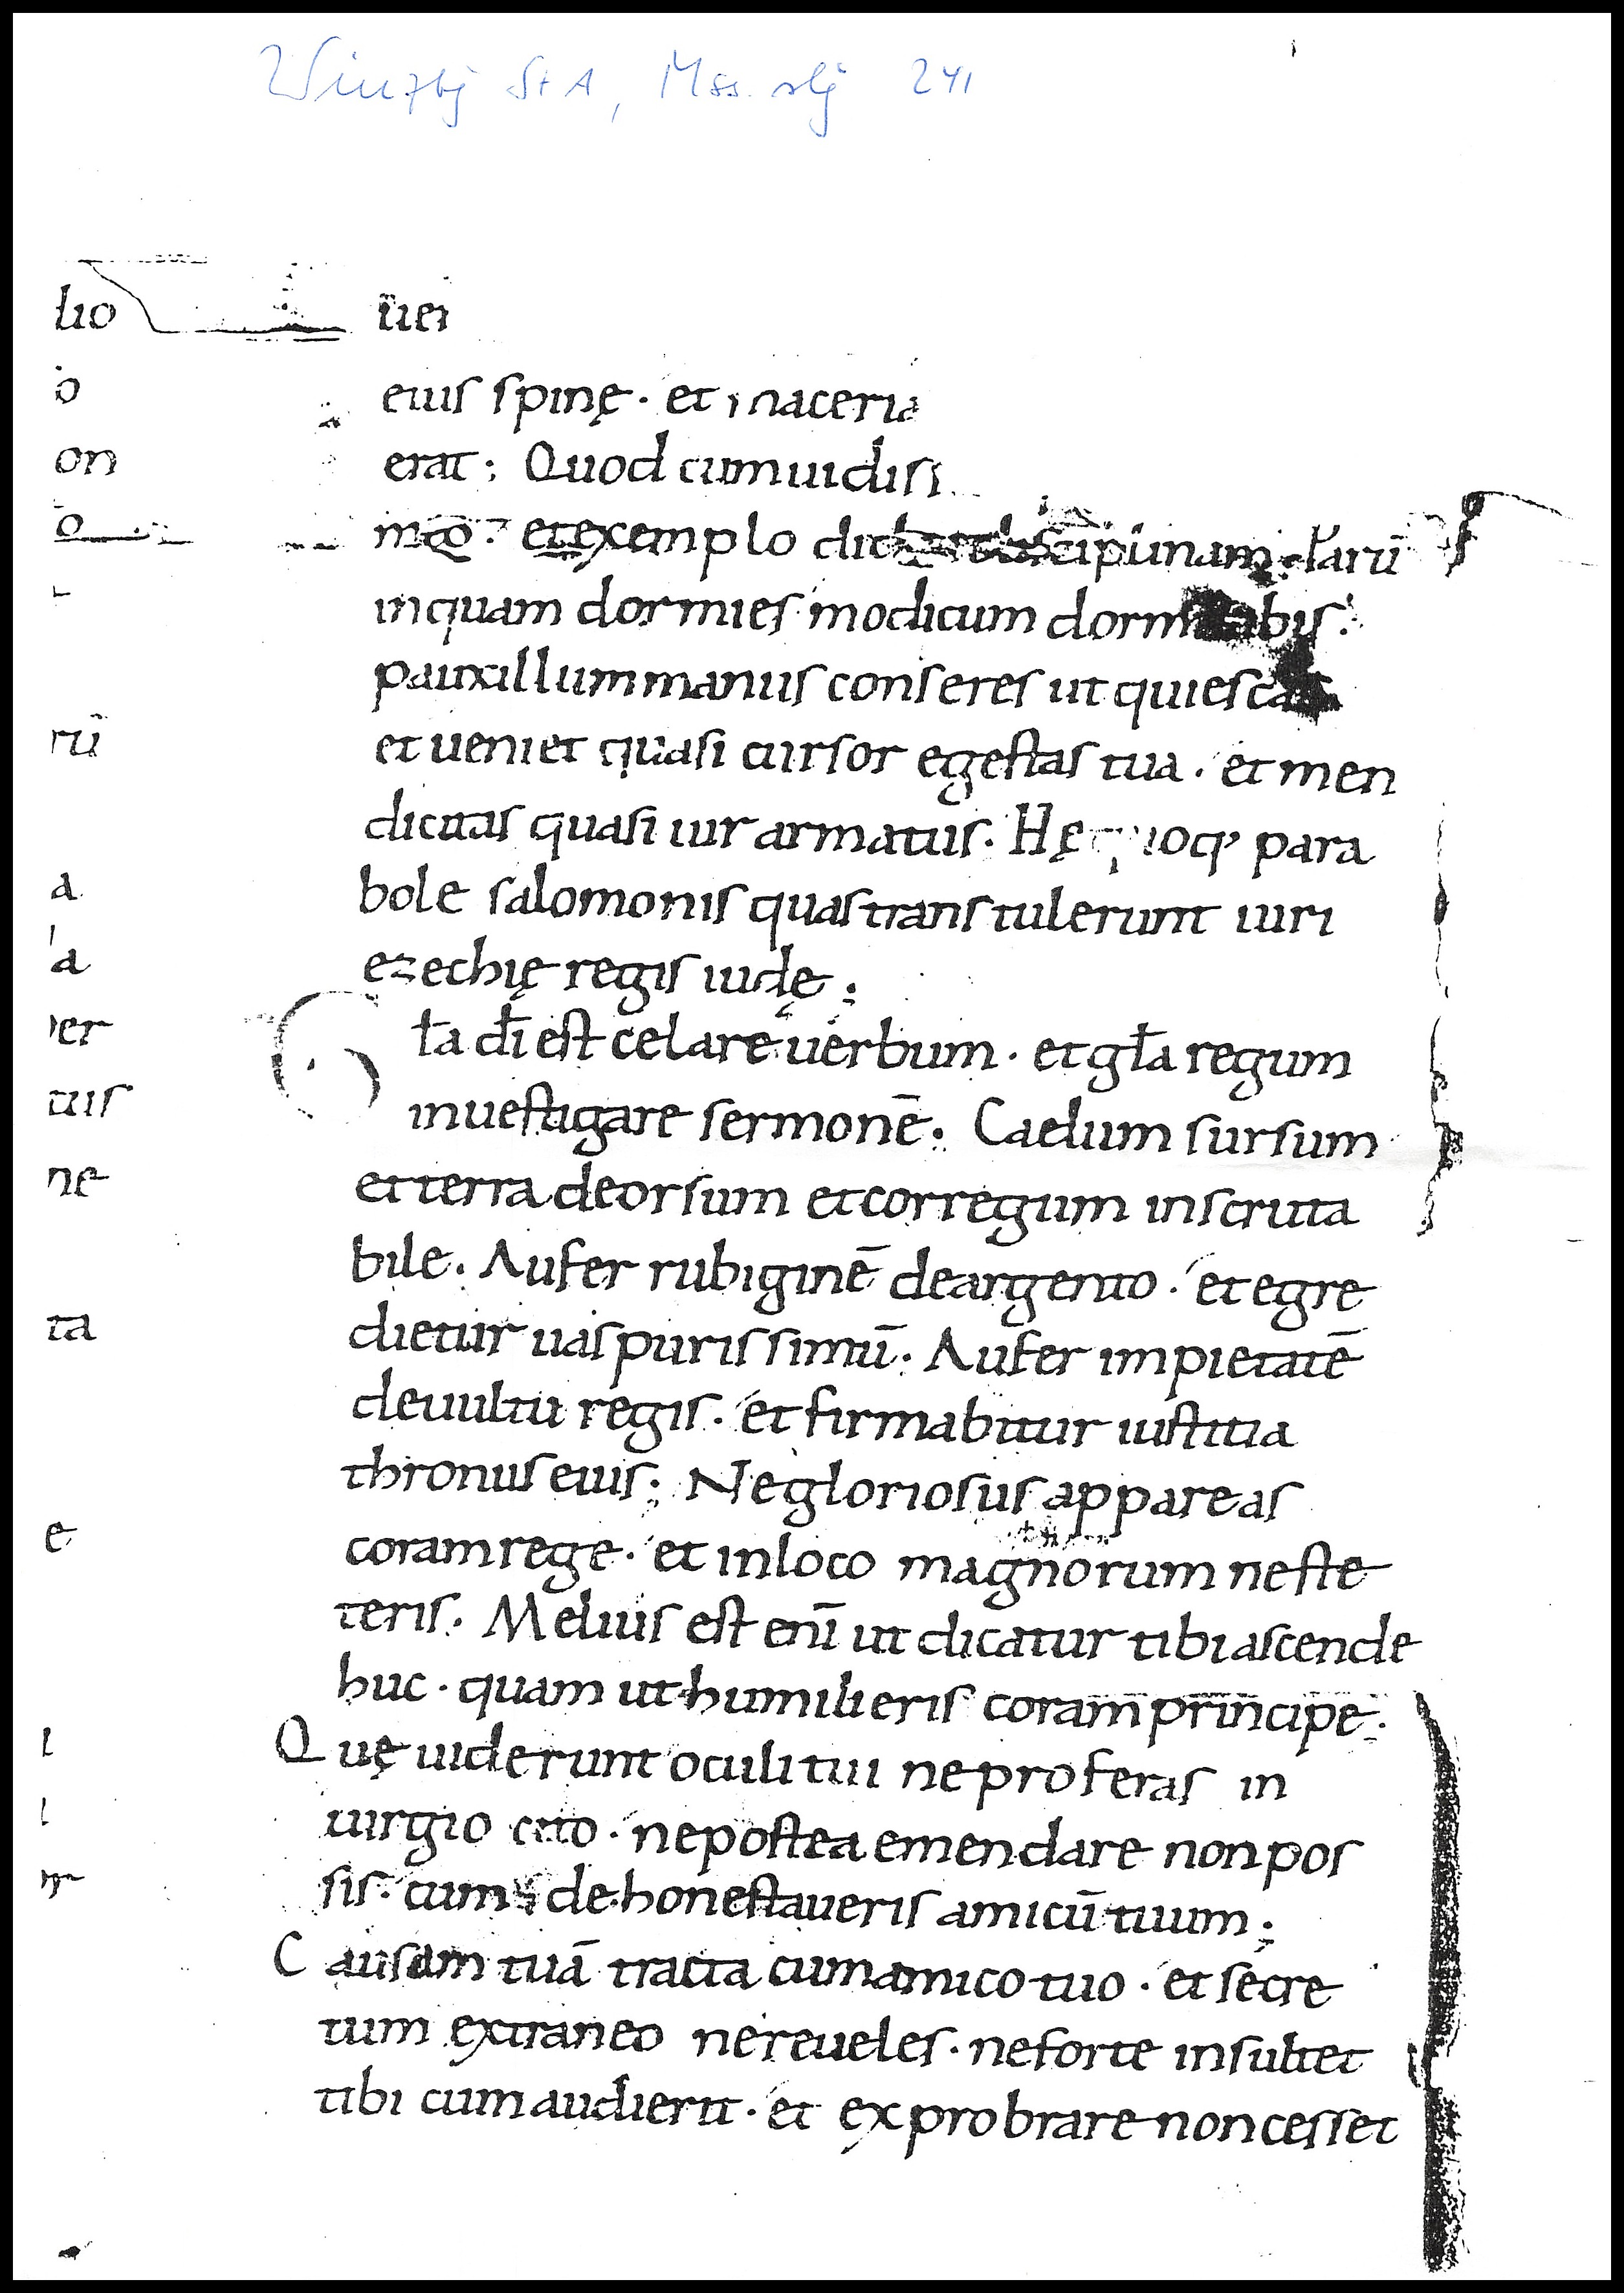 Würzbg StA, Mss. slg 241
lio
o
on
o
rū
a
a
er
tuis
ne
ta
e
l
l
uei
eius spinę · et maceria
erat ; Quod cum uidiss
mōq · et exemplo didici disciplinam · Parū
inquam dormies modicum dormitabis ·
pauxillum manus conseres ut quiescas
et ueniet quasi cursor egestas tua · et men
dicitas quasi uir armatus · Hę quoq; para
bole salomonis quas transtulerunt uiri
ezechię regis iudę ;
Gła dī est celare uerbum · et gła regum
inuestigare sermonē · Caelum sursum
et terra deorsum et cor regum inscruta
bile · Aufer rubiginē de argento · et egre
dietur uas purissimū · Aufer impietatē
de uultu regis · et firmabitur iustitia
thronus eius ; Ne gloriosus appareas
coram rege · et in loco magnorum ne ste
teris · Melius est enī ut dicatur tibi ascende
huc · quam ut humilieris coram principe ·
Quę uiderunt oculi tui ne proferas in
iurgio cito · ne postea emendare non pos
sis · cum dehonestaueris amicū tuum ;
Causam tuā tracta cum amico tuo · et secre
tum extraneo ne reueles · ne forte insultet
tibi cum audierit · et exprobrare non cesset